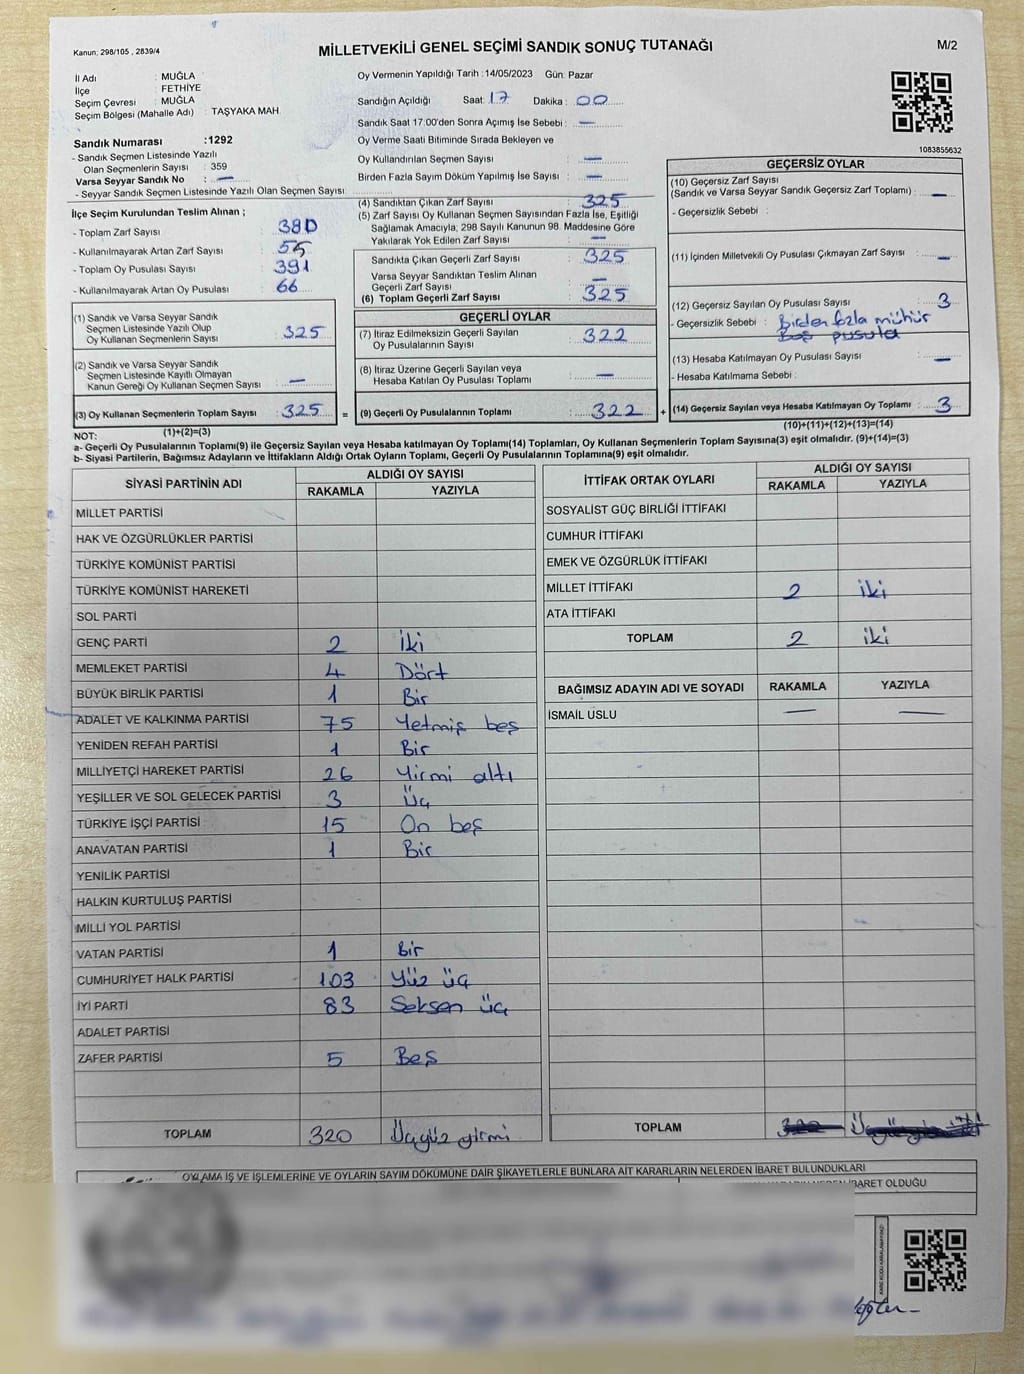 Kanun: 298/105 , 2839/4
MİLLETVEKİLİ GENEL SEÇİMİ SANDIK SONUÇ TUTANAĞI
M/2
İl Adı : MUĞLA
İlçe : FETHİYE
Seçim Çevresi : MUĞLA
Seçim Bölgesi (Mahalle Adı) : TAŞYAKA MAH.
Sandık Numarası :1292
- Sandık Seçmen Listesinde Yazılı
Olan Seçmenlerin Sayısı : 359
Varsa Seyyar Sandık No : —
- Seyyar Sandık Seçmen Listesinde Yazılı Olan Seçmen Sayısı:
Oy Vermenin Yapıldığı Tarih :14/05/2023 Gün: Pazar
Sandığın Açıldığı Saat: 17 Dakika : 00
Sandık Saat 17:00'den Sonra Açımış İse Sebebi : —
Oy Verme Saati Bitiminde Sırada Bekleyen ve
Oy Kullandırılan Seçmen Sayısı : —
Birden Fazla Sayım Döküm Yapılmış İse Sayısı : —
1083855632
İlçe Seçim Kurulundan Teslim Alınan ;
- Toplam Zarf Sayısı : 380
- Kullanılmayarak Artan Zarf Sayısı : 55
- Toplam Oy Pusulası Sayısı : 391
- Kullanılmayarak Artan Oy Pusulası : 66
(1) Sandık ve Varsa Seyyar Sandık
Seçmen Listesinde Yazılı Olup
Oy Kullanan Seçmenlerin Sayısı : 325
(2) Sandık ve Varsa Seyyar Sandık
Seçmen Listesinde Kayıtlı Olmayan
Kanun Gereği Oy Kullanan Seçmen Sayısı : —
(3) Oy Kullanan Seçmenlerin Toplam Sayısı : 325 =
(1)+(2)=(3)
(4) Sandıktan Çıkan Zarf Sayısı : 325
(5) Zarf Sayısı Oy Kullanan Seçmen Sayısından Fazla İse, Eşitliği
Sağlamak Amacıyla; 298 Sayılı Kanunun 98. Maddesine Göre
Yakılarak Yok Edilen Zarf Sayısı : —
Sandıkta Çıkan Geçerli Zarf Sayısı : 325
Varsa Seyyar Sandıktan Teslim Alınan
Geçerli Zarf Sayısı : —
(6) Toplam Geçerli Zarf Sayısı : 325
GEÇERLİ OYLAR
(7) İtiraz Edilmeksizin Geçerli Sayılan
Oy Pusulalarının Sayısı : 322
(8) İtiraz Üzerine Geçerli Sayılan veya
Hesaba Katılan Oy Pusulası Toplamı : —
(9) Geçerli Oy Pusulalarının Toplamı : 322 +
GEÇERSİZ OYLAR
(10) Geçersiz Zarf Sayısı
(Sandık ve Varsa Seyyar Sandık Geçersiz Zarf Toplamı) : —
- Geçersizlik Sebebi :
(11) İçinden Milletvekili Oy Pusulası Çıkmayan Zarf Sayısı : —
(12) Geçersiz Sayılan Oy Pusulası Sayısı : 3
- Geçersizlik Sebebi : Birden fazla mühür
Boş pusula
(13) Hesaba Katılmayan Oy Pusulası Sayısı : —
- Hesaba Katılmama Sebebi :
(14) Geçersiz Sayılan veya Hesaba Katılmayan Oy Toplamı : 3
(10)+(11)+(12)+(13)=(14)
NOT:
a- Geçerli Oy Pusulalarının Toplamı(9) ile Geçersiz Sayılan veya Hesaba katılmayan Oy Toplamı(14) Toplamları, Oy Kullanan Seçmenlerin Toplam Sayısına(3) eşit olmalıdır. (9)+(14)=(3)
b- Siyasi Partilerin, Bağımsız Adayların ve İttifakların Aldığı Ortak Oyların Toplamı, Geçerli Oy Pusulalarının Toplamına(9) eşit olmalıdır.
SİYASİ PARTİNİN ADI ALDIĞI OY SAYISI
RAKAMLA YAZIYLA
MİLLET PARTİSİ
HAK VE ÖZGÜRLÜKLER PARTİSİ
TÜRKİYE KOMÜNİST PARTİSİ
TÜRKİYE KOMÜNİST HAREKETİ
SOL PARTİ
GENÇ PARTİ 2 İki
MEMLEKET PARTİSİ 4 Dört
BÜYÜK BİRLİK PARTİSİ 1 Bir
ADALET VE KALKINMA PARTİSİ 75 Yetmiş beş
YENİDEN REFAH PARTİSİ 1 Bir
MİLLİYETÇİ HAREKET PARTİSİ 26 Yirmi altı
YEŞİLLER VE SOL GELECEK PARTİSİ 3 Üç
TÜRKİYE İŞÇİ PARTİSİ 15 On beş
ANAVATAN PARTİSİ 1 Bir
YENİLİK PARTİSİ
HALKIN KURTULUŞ PARTİSİ
MİLLİ YOL PARTİSİ
VATAN PARTİSİ 1 Bir
CUMHURİYET HALK PARTİSİ 103 Yüz üç
İYİ PARTİ 83 Seksen üç
ADALET PARTİSİ
ZAFER PARTİSİ 5 Beş
TOPLAM 320 Üçyüz yirmi
İTTİFAK ORTAK OYLARI ALDIĞI OY SAYISI
RAKAMLA YAZIYLA
SOSYALİST GÜÇ BİRLİĞİ İTTİFAKI
CUMHUR İTTİFAKI
EMEK VE ÖZGÜRLÜK İTTİFAKI
MİLLET İTTİFAKI 2 iki
ATA İTTİFAKI
TOPLAM 2 iki
BAĞIMSIZ ADAYIN ADI VE SOYADI RAKAMLA YAZIYLA
İSMAİL USLU — —
TOPLAM
OYLAMA İŞ VE İŞLEMLERİNE VE OYLARIN SAYIM DÖKÜMÜNE DAİR ŞİKAYETLERLE BUNLARA AİT KARARLARIN NELERDEN İBARET BULUNDUKLARI
İBARET OLDUĞU